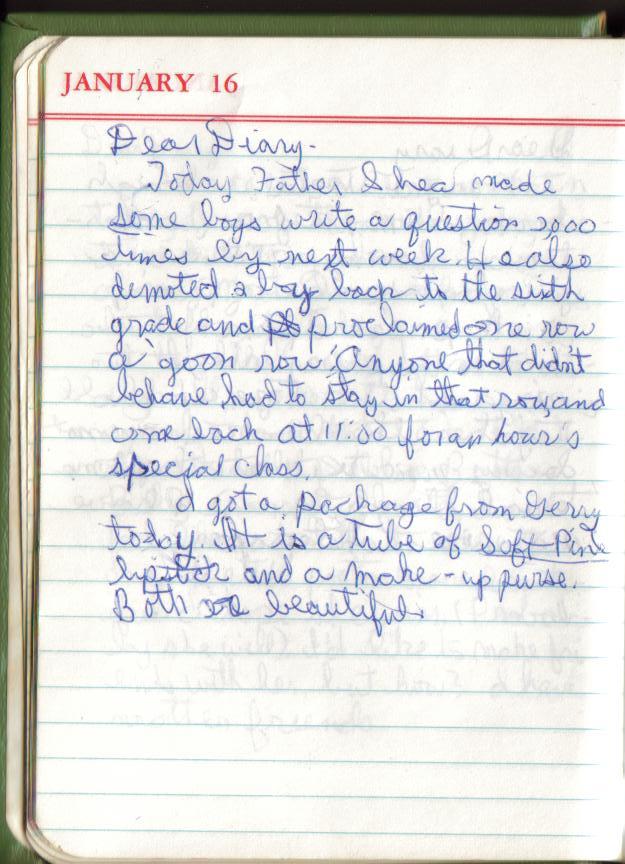 JANUARY 16
Dear Diary-
Today Father Shea made
some boys write a question 2,000
times by next week. He also
demoted a boy back to the sixth
grade and proclaimed one row
a "goon row". Anyone that didn't
behave had to stay in that row, and
come back at 11:00 for an hour's
special class.
I got a package from Gerry
today. It is a tube of Soft Pink
lipstick and a make-up purse.
Both are beautiful.